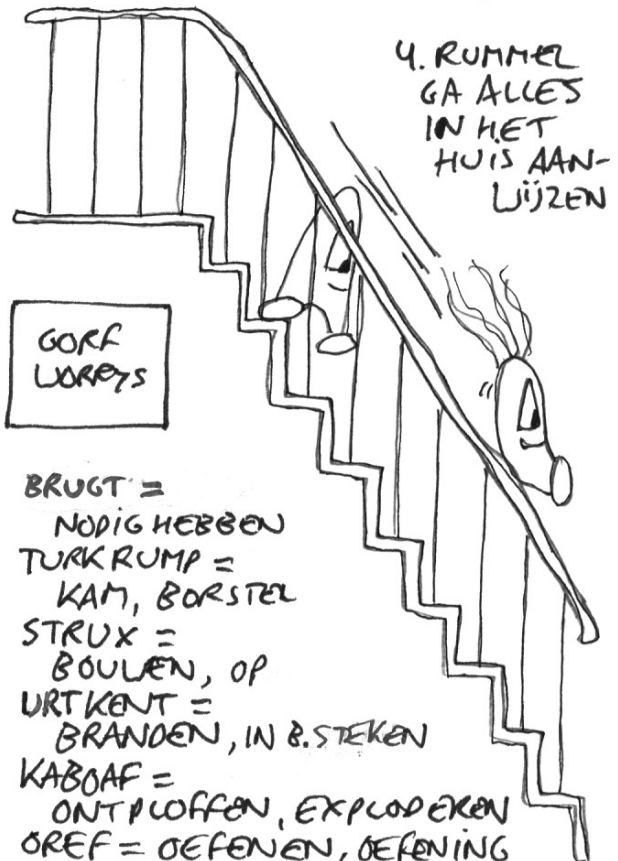 4. RUMMEL
GA ALLES
IN HET
HUIS AAN-
WIJZEN
GORF
WORPYS
BRUGT =
NODIG HEBBEN
TURKRUMP =
KAM, BORSTEL
STRUX =
BOUWEN, OP
URTKENT =
BRANDEN, IN B. STEKEN
KABOAF =
ONTPLOFFEN, EXPLODEREN
OREF = OEFENEN, OEFENING